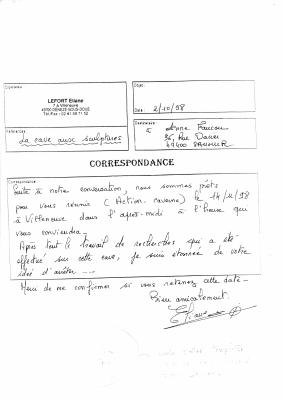 Expéditeur
LEFORT Eliane
7 à Villeneuve
49700 DENEZE-SOUS-DOUE
Tél./Fax : 02 41 59 71 52
Références
La cave aux sculptures
Objet :
Date : 2/10/98
Destinataire
à Anne Faucou
36, Rue Dacier
49400 SAUMUR
CORRESPONDANCE
Correspondance
Suite à notre conversation, nous sommes prêts
pour vous réunir (Action-caverne) le 14/11/98
à Villeneuve dans l'après-midi à l'heure que
vous conviendra !
Après tout le travail de recherches qui a été
effectué sur cette cave, je suis étonnée de votre
idée d'arrêter ...
Merci de me confirmer si vous retenez cette date -
Bien amicalement.